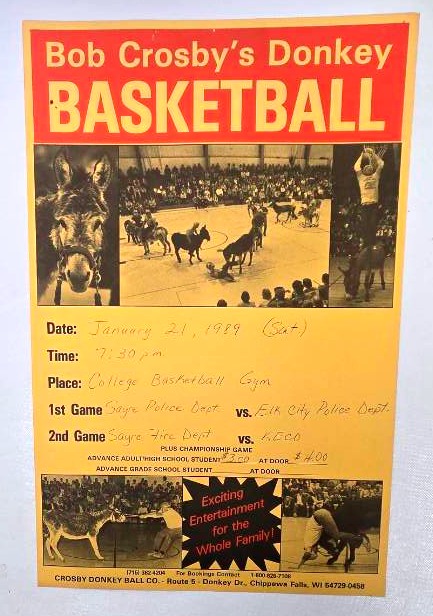 Bob Crosby's Donkey
BASKETBALL
Date: January 21, 1989 (Sat.)
Time: 7:30 pm
Place: College Basketball Gym
1st Game Sayre Police Dept. vs. Elk City Police Dept.
2nd Game Sayre Fire Dept vs. KECO
PLUS CHAMPIONSHIP GAME
ADVANCE ADULT/HIGH SCHOOL STUDENT $3.00 AT DOOR $4.00
ADVANCE GRADE SCHOOL STUDENT AT DOOR
Exciting
Entertainment
for the
Whole Family!
(715) 382-4204 For Bookings Contact 1-800-826-7308
CROSBY DONKEY BALL CO. - Route 5 - Donkey Dr., Chippewa Falls, WI 54729-0458